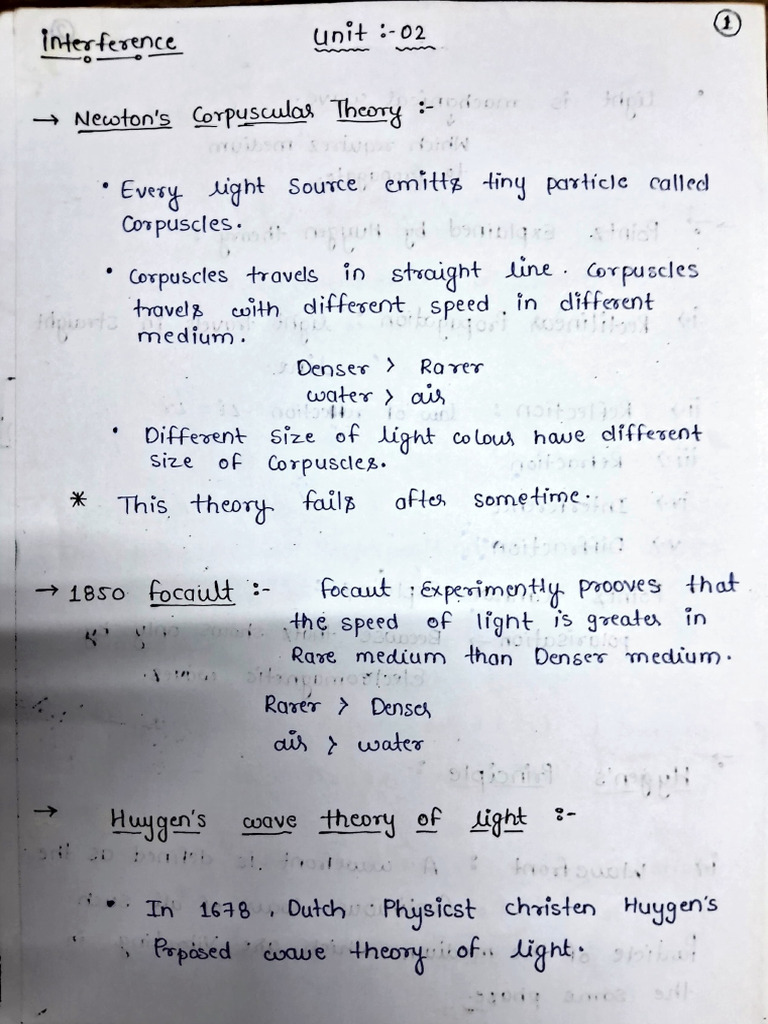 Interference
Unit :- 02
1
→ Newton's Corpuscular Theory :-
• Every light source emitts tiny particle called
Corpuscles.
• Corpuscles travels in straight line. Corpuscles
travels with different speed in different
medium.
Denser > Rarer
water > air
• Different size of light colour have different
size of Corpuscles.
* This theory fails after sometime.
→ 1850 focault :- Focaut Experimently prooves that
the speed of light is greater in
Rare medium than Denser medium.
Rarer > Denser
air > water
→ Huygen's wave theory of light :-
• In 1678, Dutch Physicst christen Huygen's
Prposed wave theory of light.